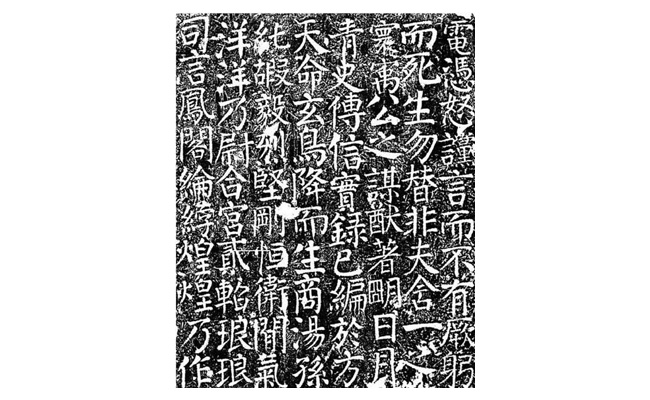 電憑怒謹言而不有厥躬
而死生勿替非夫含一
寰寓公之謀猷著明日月
青史傳信實録已編於方
天命玄鳥降而生商湯孫
純嘏毅烈堅剛恒衛閒氣
洋洋乃尉合宮貳軺琅琅
司言鳳閣綸綍煌煌乃作